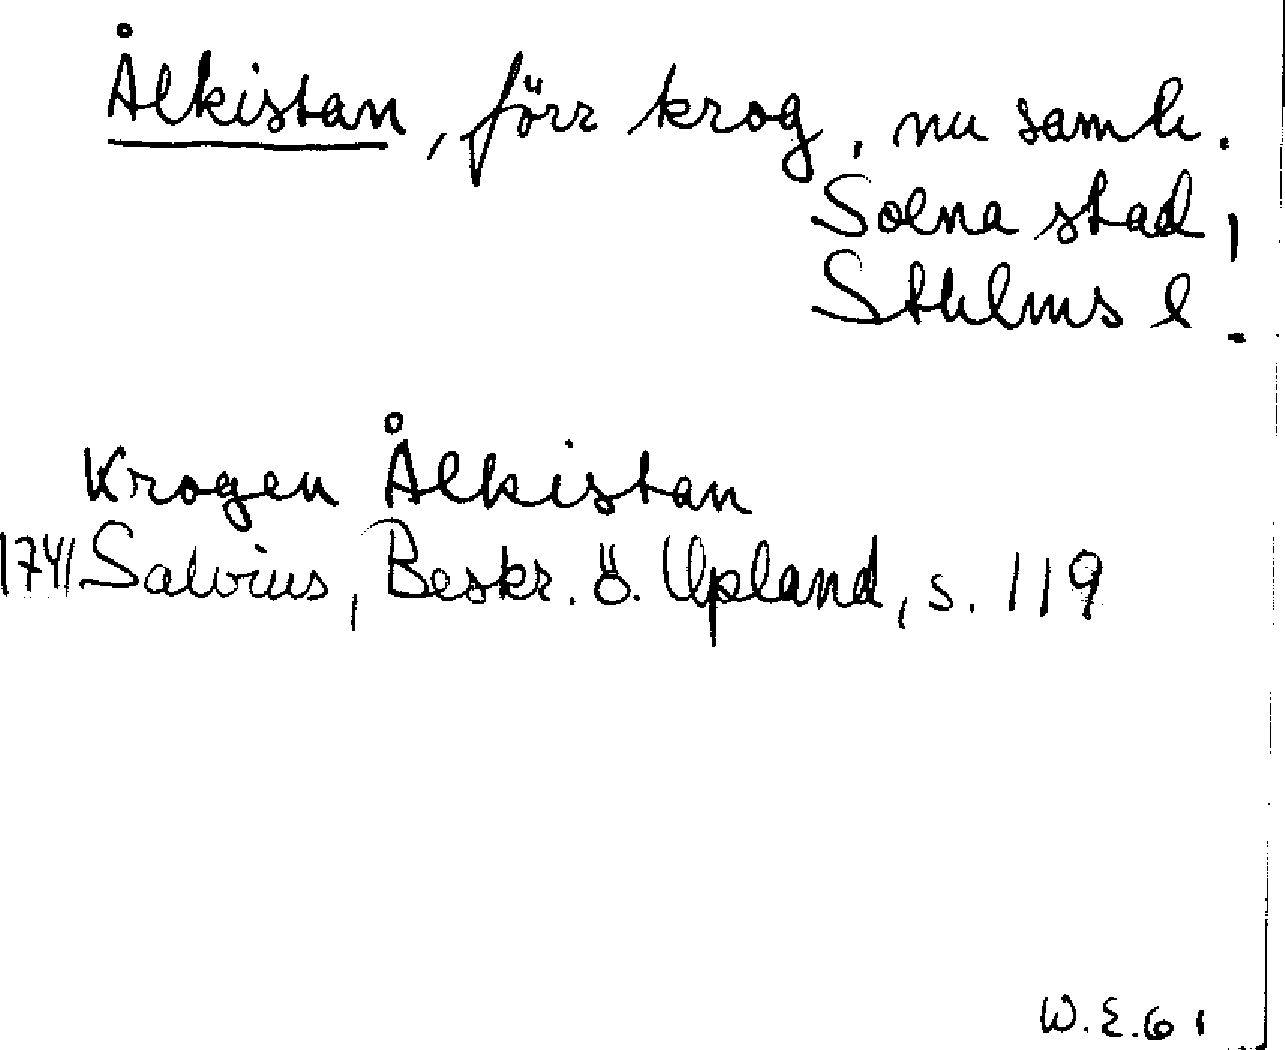 Ålkistan, förr krog, nu saml.
Solna stad,
Sthlms l.
Krogen Ålkistan
1741 Salvius, Beskr. ö. Upland, s. 119
W.E.61